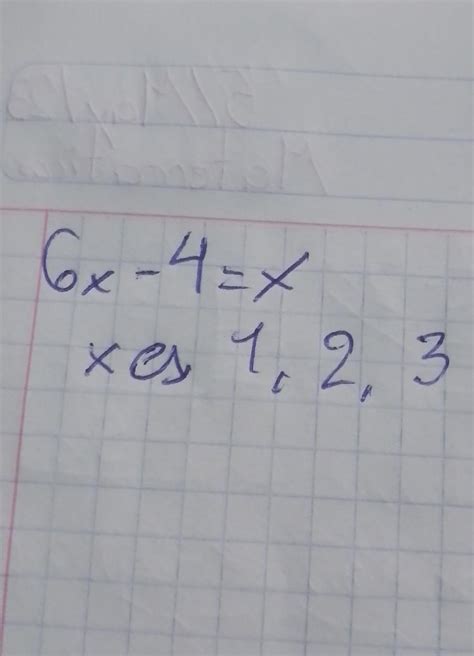 6x-4=x
x es 1, 2, 3